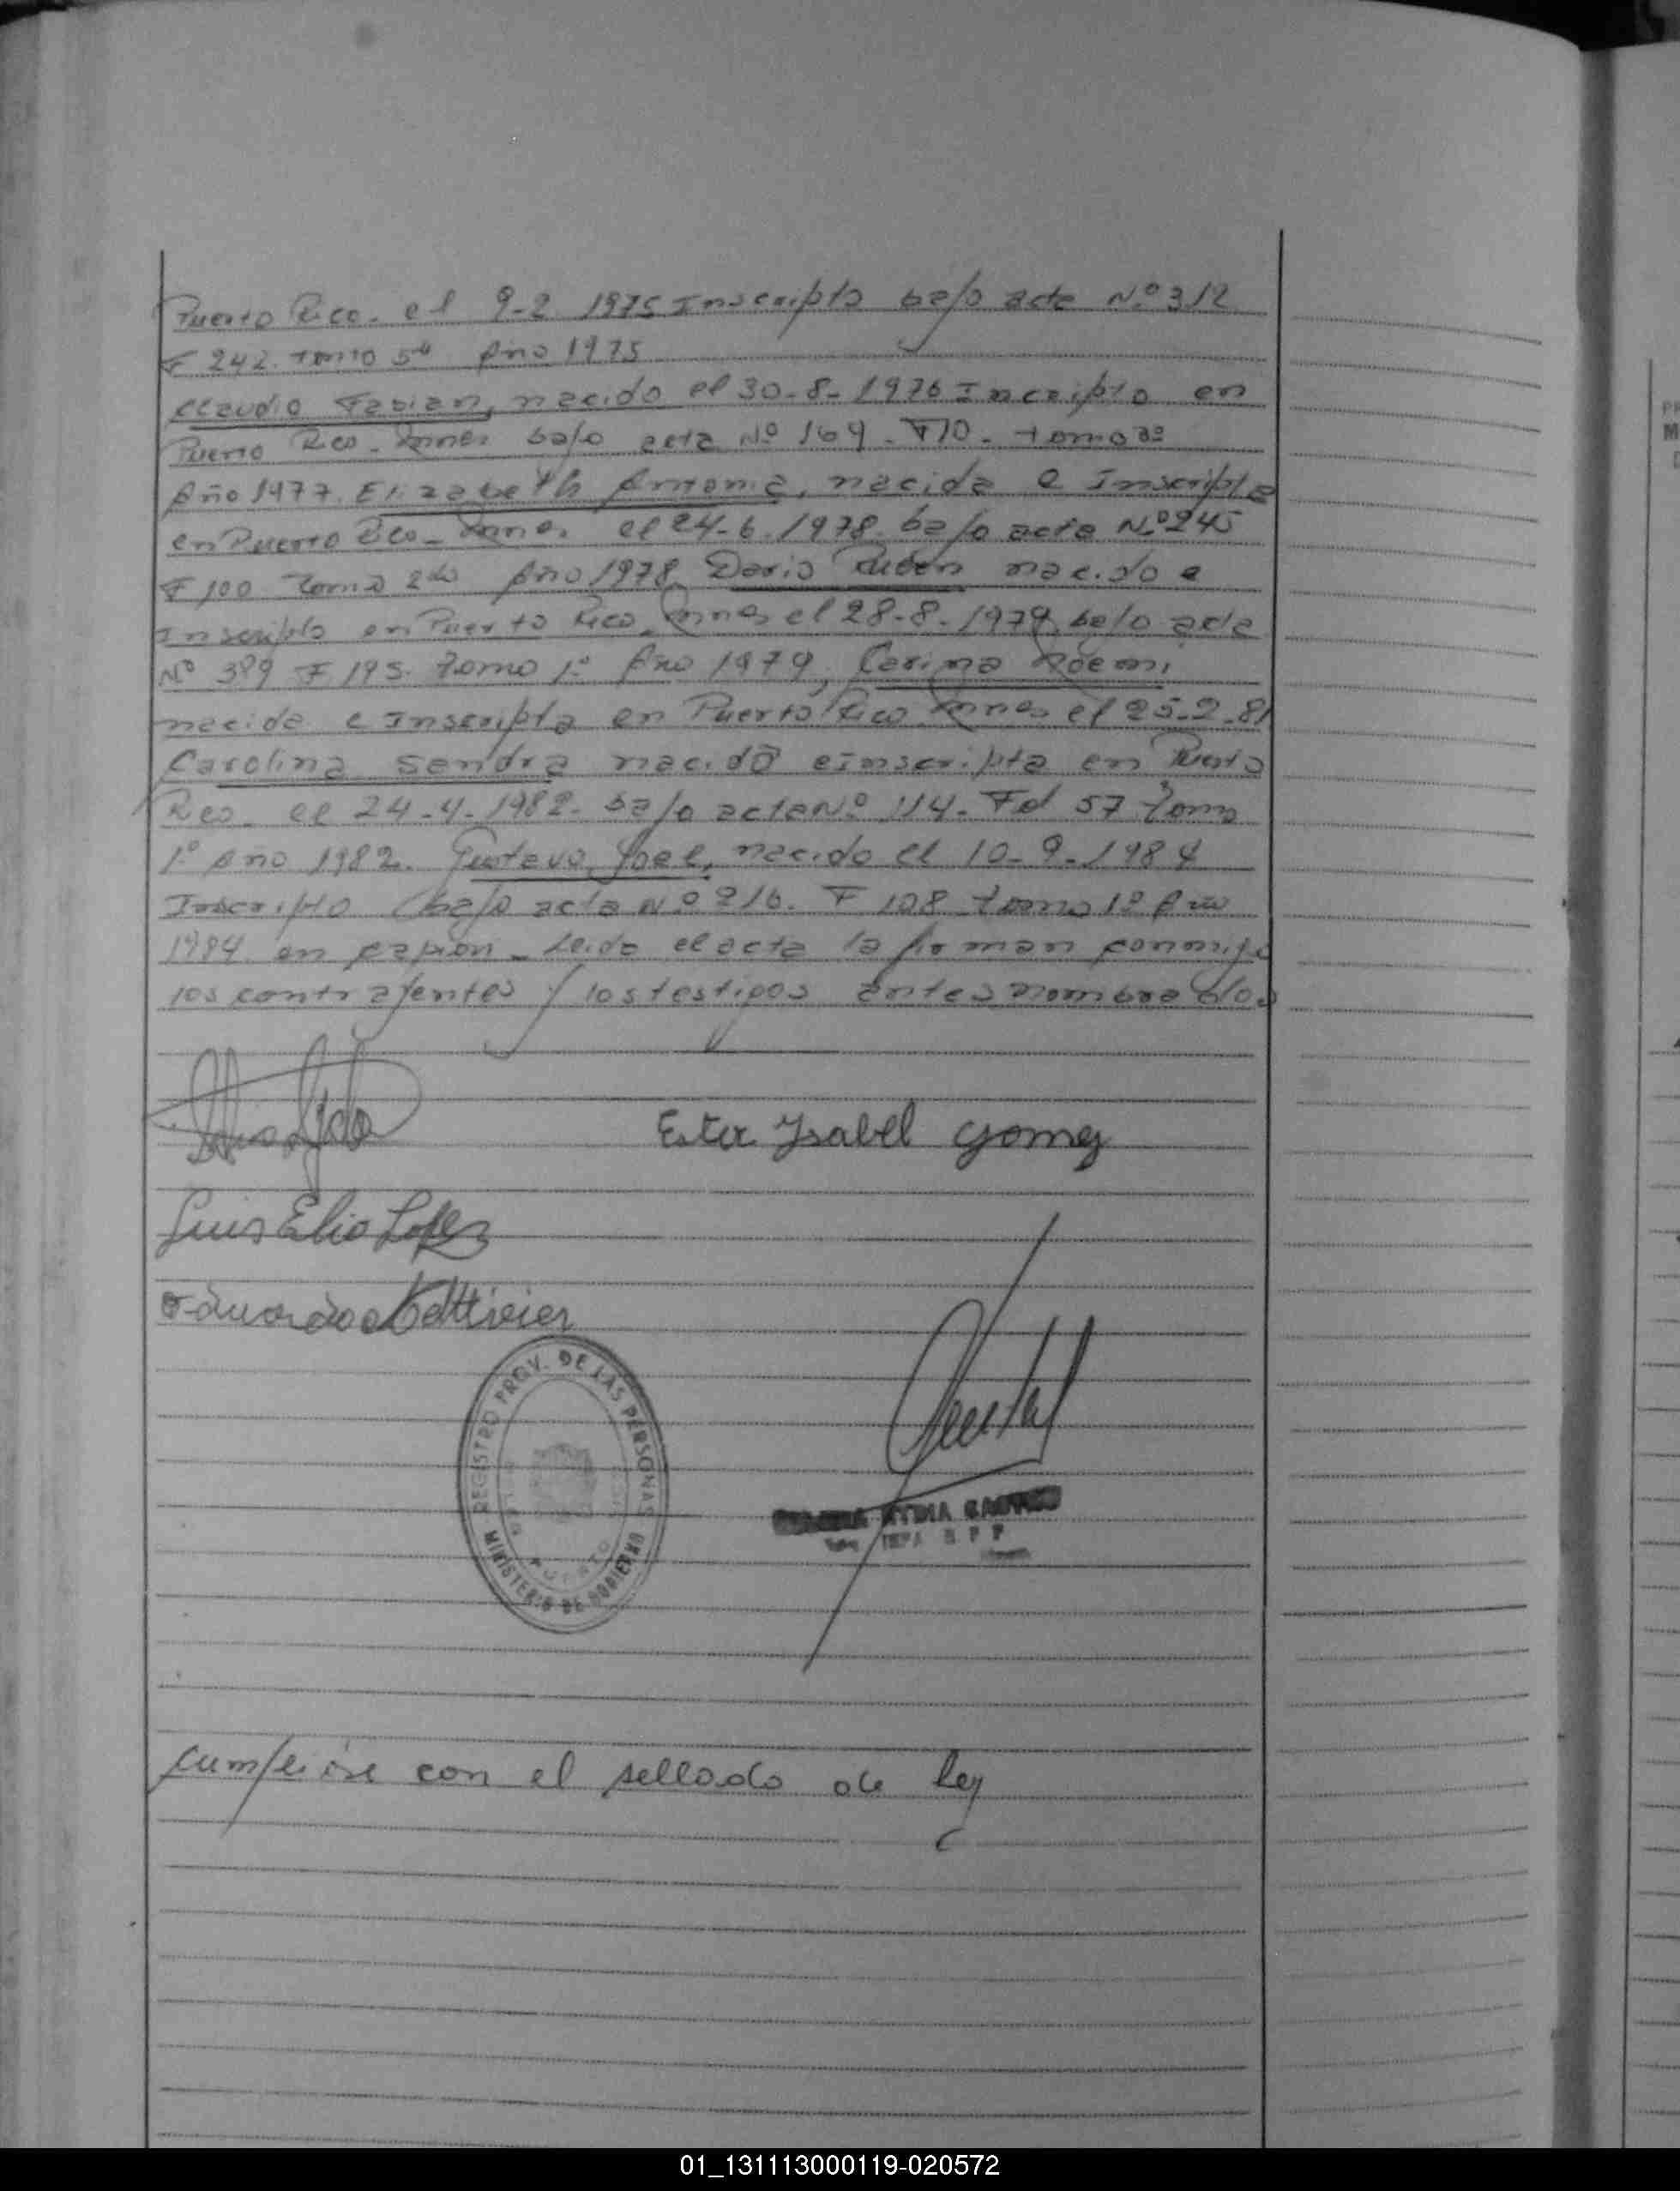 Puerto Rico. el 9-2 1975 Inscripto bajo acta Nº 312
F 242. tomo 5º Año 1975
Claudio Fabian, nacido el 30-8-1976 Incripto en
Puerto Rico. bajo acta Nº 169. F70. tomo 3º
Año 1977. Elizabeth Antonia, nacida e Inscripta
en Puerto Rico. el 24-6-1978. bajo acta Nº 245
F 100 Tomo 2do Año 1978, Dario Ruben nacido e
Inscripto en Puerto Rico, el 28-8-1979, bajo acta
Nº 389 F 195. Tomo 1º Año 1979, Carina Noemi
nacida e Inscripta en Puerto Rico el 25-2-81
Carolina Sandra nacida e inscripta en Puerto
Rco. el 24-4-1982. bajo acta Nº 114. Fd 57 Tomo
1º Año 1982. Gustavo Joel, nacido el 10-9-1984
Inscripto bajo acta Nº 216. F 108 tomo 1º Año
1984. en Leida el acta la firman conmigo
los contrayentes y los testigos antes nombrados
Ester Ysabel Gomez
Luis Elio Lopez
Eduardo
REGISTRO PROV. DE LAS PERSONAS
MINISTERIO DE GOBIERNO
cumpliose con el sellado de ley
01_131113000119-020572